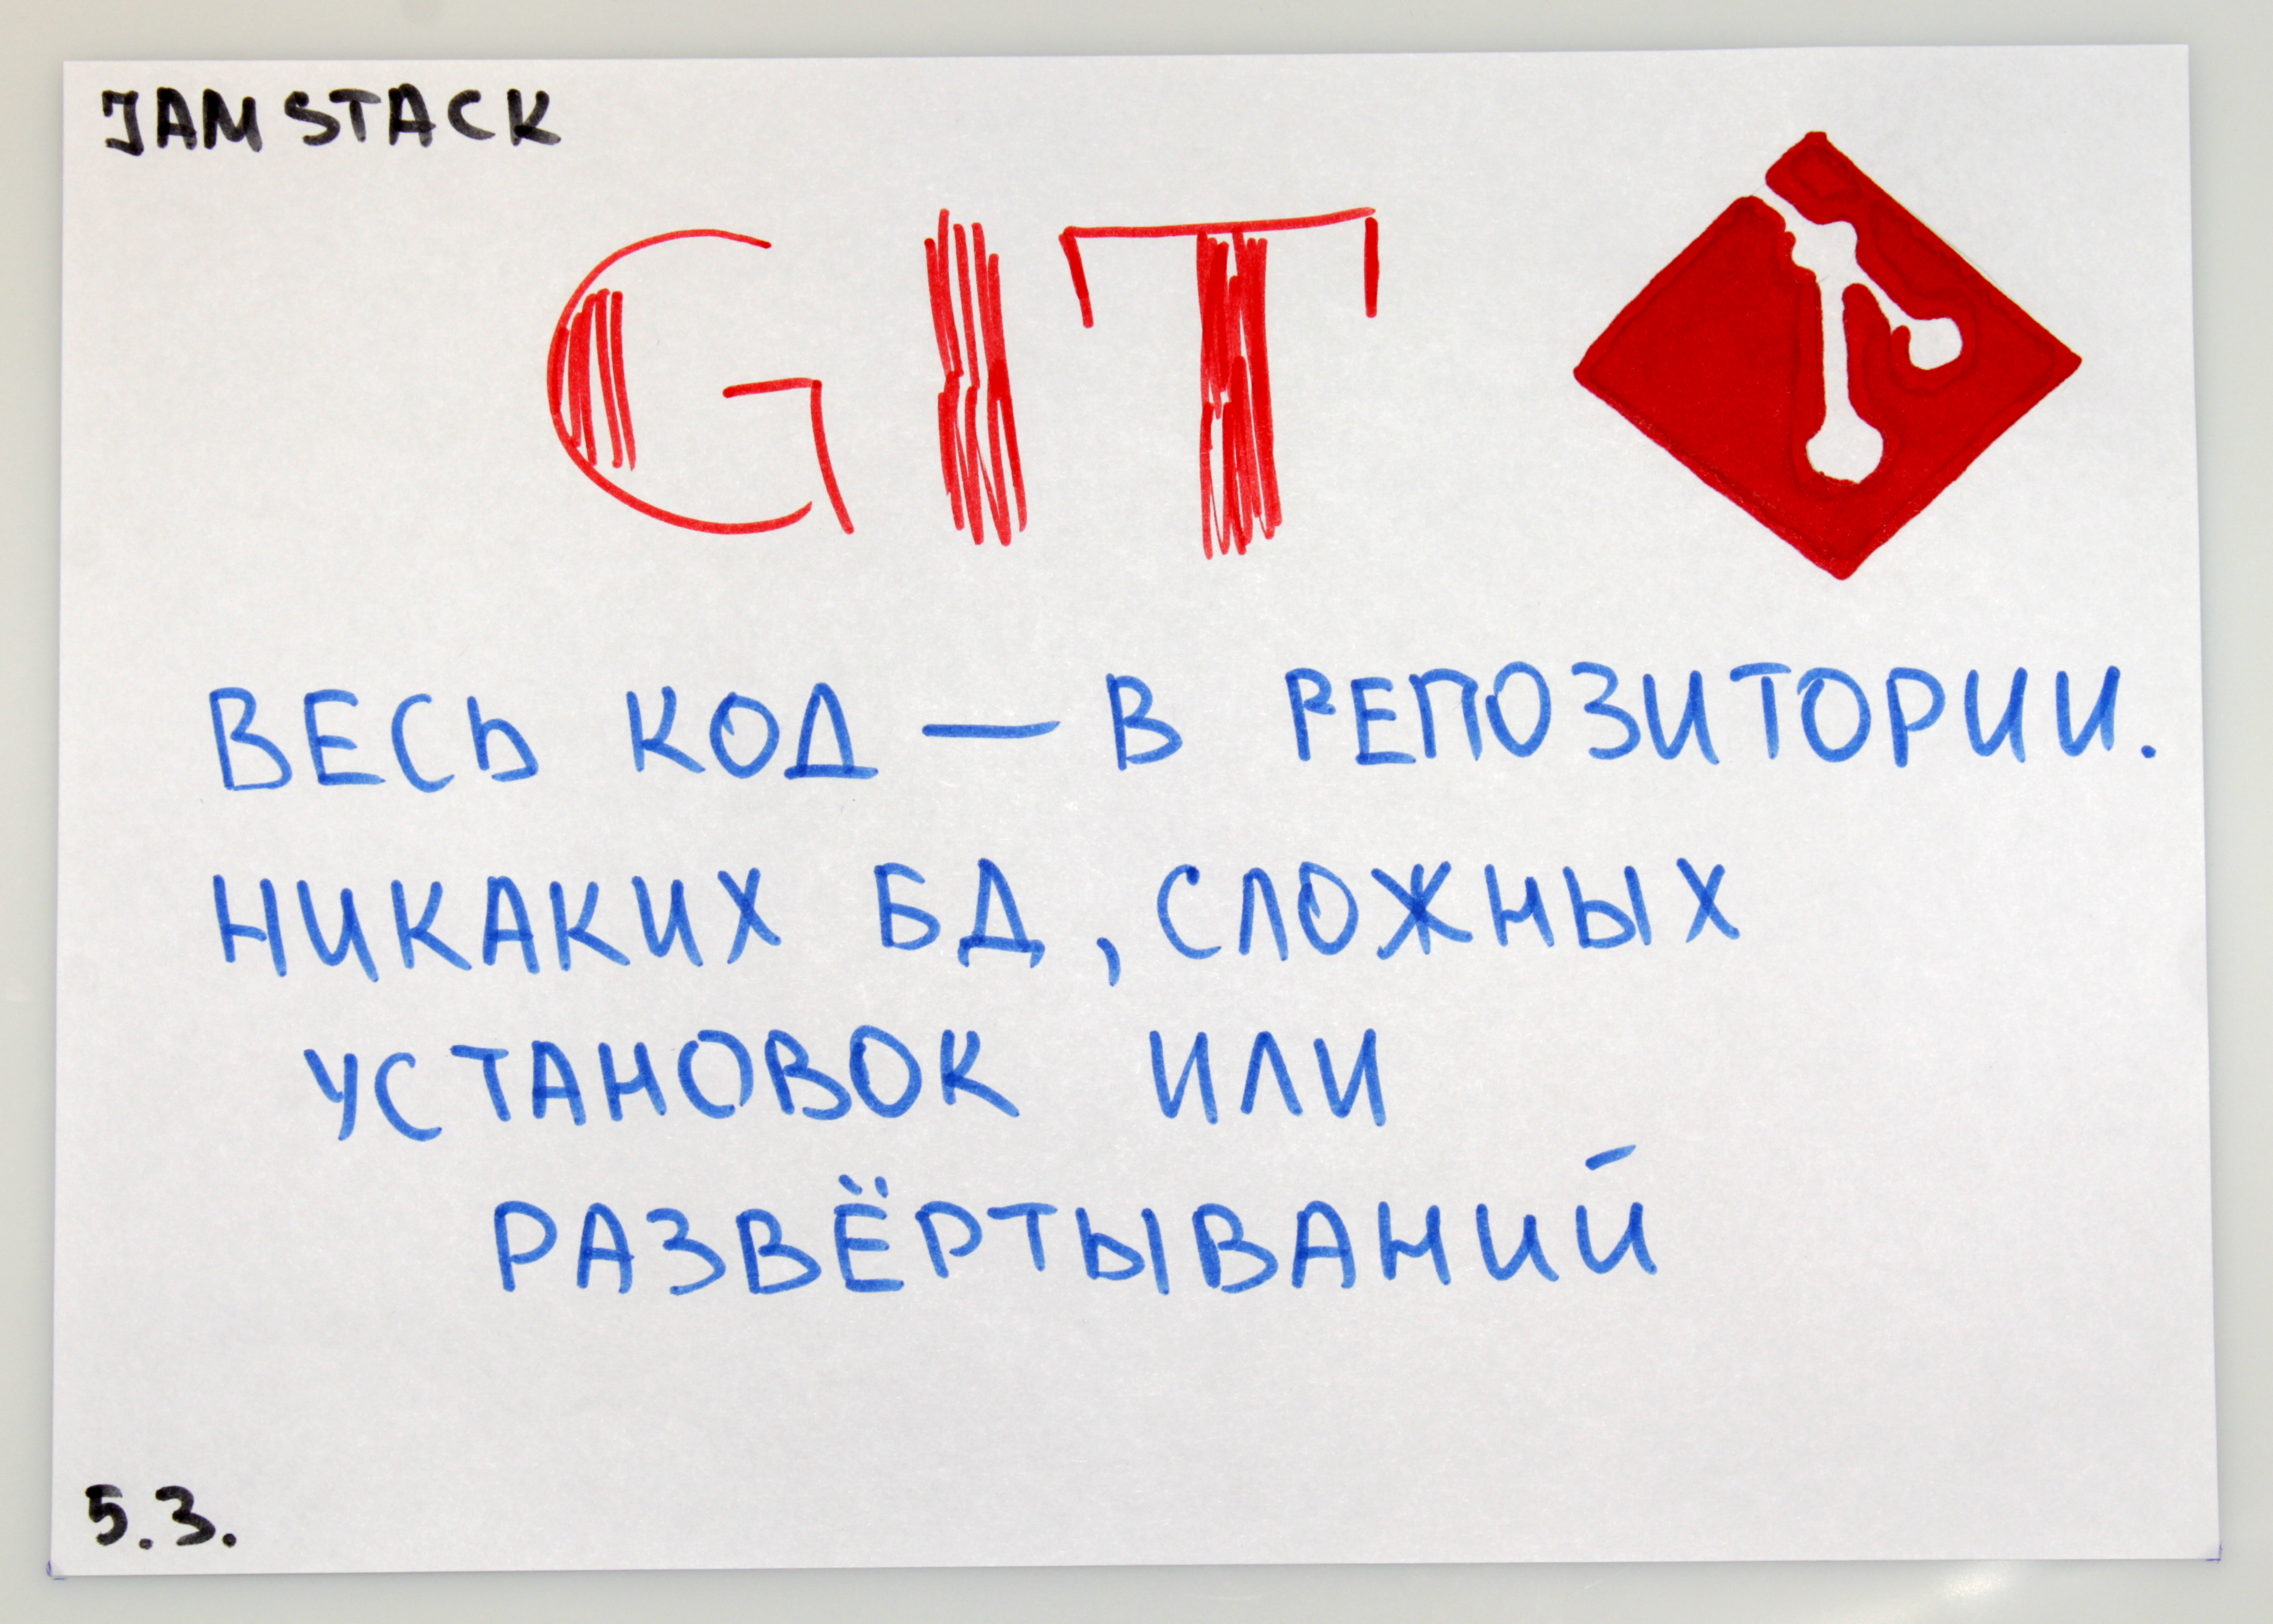 JAMSTACK
GIT
ВЕСЬ КОД — В РЕПОЗИТОРИИ.
НИКАКИХ БД, СЛОЖНЫХ
УСТАНОВОК ИЛИ
РАЗВЁРТЫВАНИЙ
5.3.